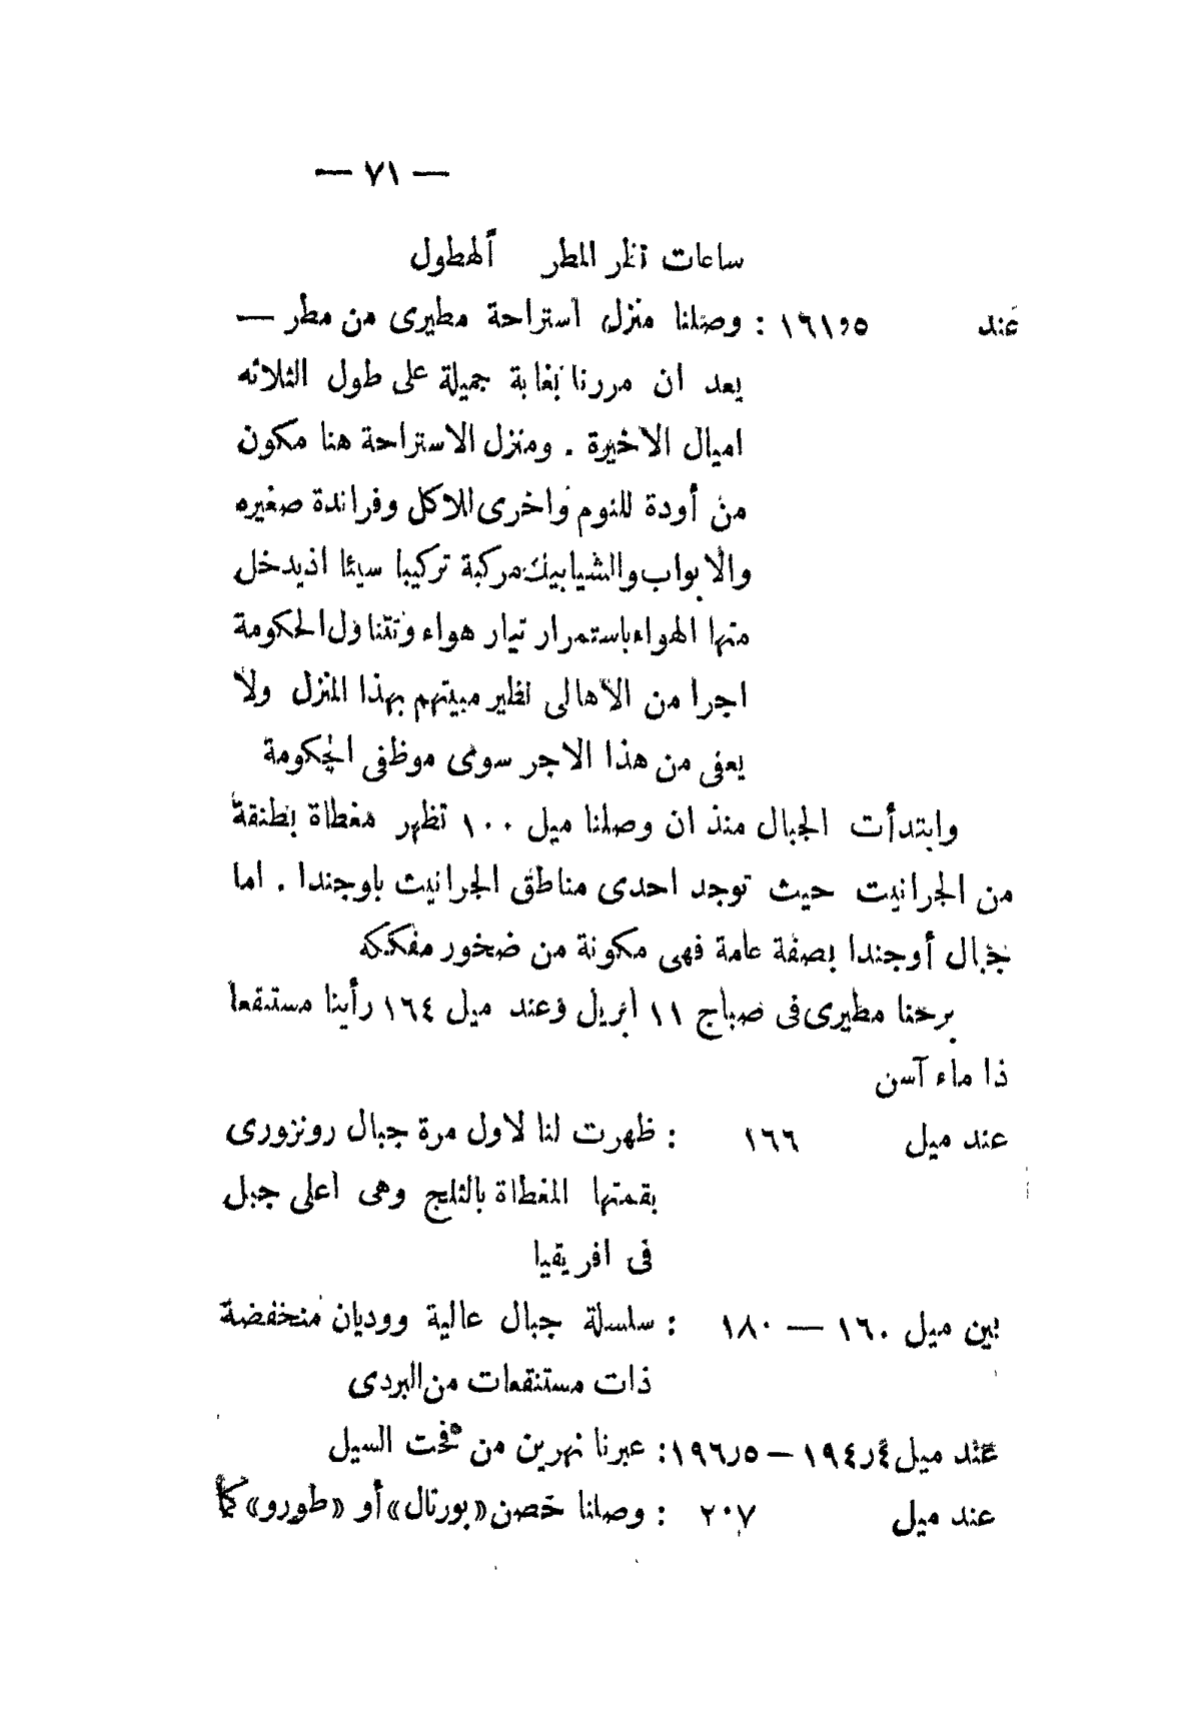 — ٧١ —
ساعات نظر المطر الهطول
عند ١٦١٫٥ : وصلنا منزل استراحة مطيرى من مطر —
بعد ان مررنا بغابة جميلة على طول الثلاثه
اميال الاخيرة . ومنزل الاستراحة هنا مكون
من أودة للنوم واخرى للاكل وفراندة صغيره
والابواب والشبابيك مركبة تركيبا سيئا اذ يدخل
منها الهواء باستمرار تيار هواء وتتناول الحكومة
اجرا من الاهالى نظير مبيتهم بهذا المنزل ولا
يعفى من هذا الاجر سوى موظفى الحكومة
وابتدأت الجبال منذ ان وصلنا ميل ١٠٠ تظهر مغطاة بطبقة
من الجرانيت حيث توجد احدى مناطق الجرانيت باوجندا . اما
جبال أوجندا بصفة عامة فهى مكونة من صخور مفككه
برحنا مطيرى فى صباح ١١ ابريل وعند ميل ١٦٤ رأينا مستنقعا
ذا ماء آسن
عند ميل ١٦٦ : ظهرت لنا لاول مرة جبال رونزورى
بقمتها المغطاة بالثلج وهى اعلى جبل
فى افريقيا
بين ميل ١٦٠ — ١٨٠ : سلسلة جبال عالية ووديان منخفضة
ذات مستنقعات من البردى
عند ميل ١٩٤٫٤ — ١٩٦٫٥ : عبرنا نهرين من تحت السيل
عند ميل ٢٠٧ : وصلنا حصن «بورتال» أو «طورو» كما